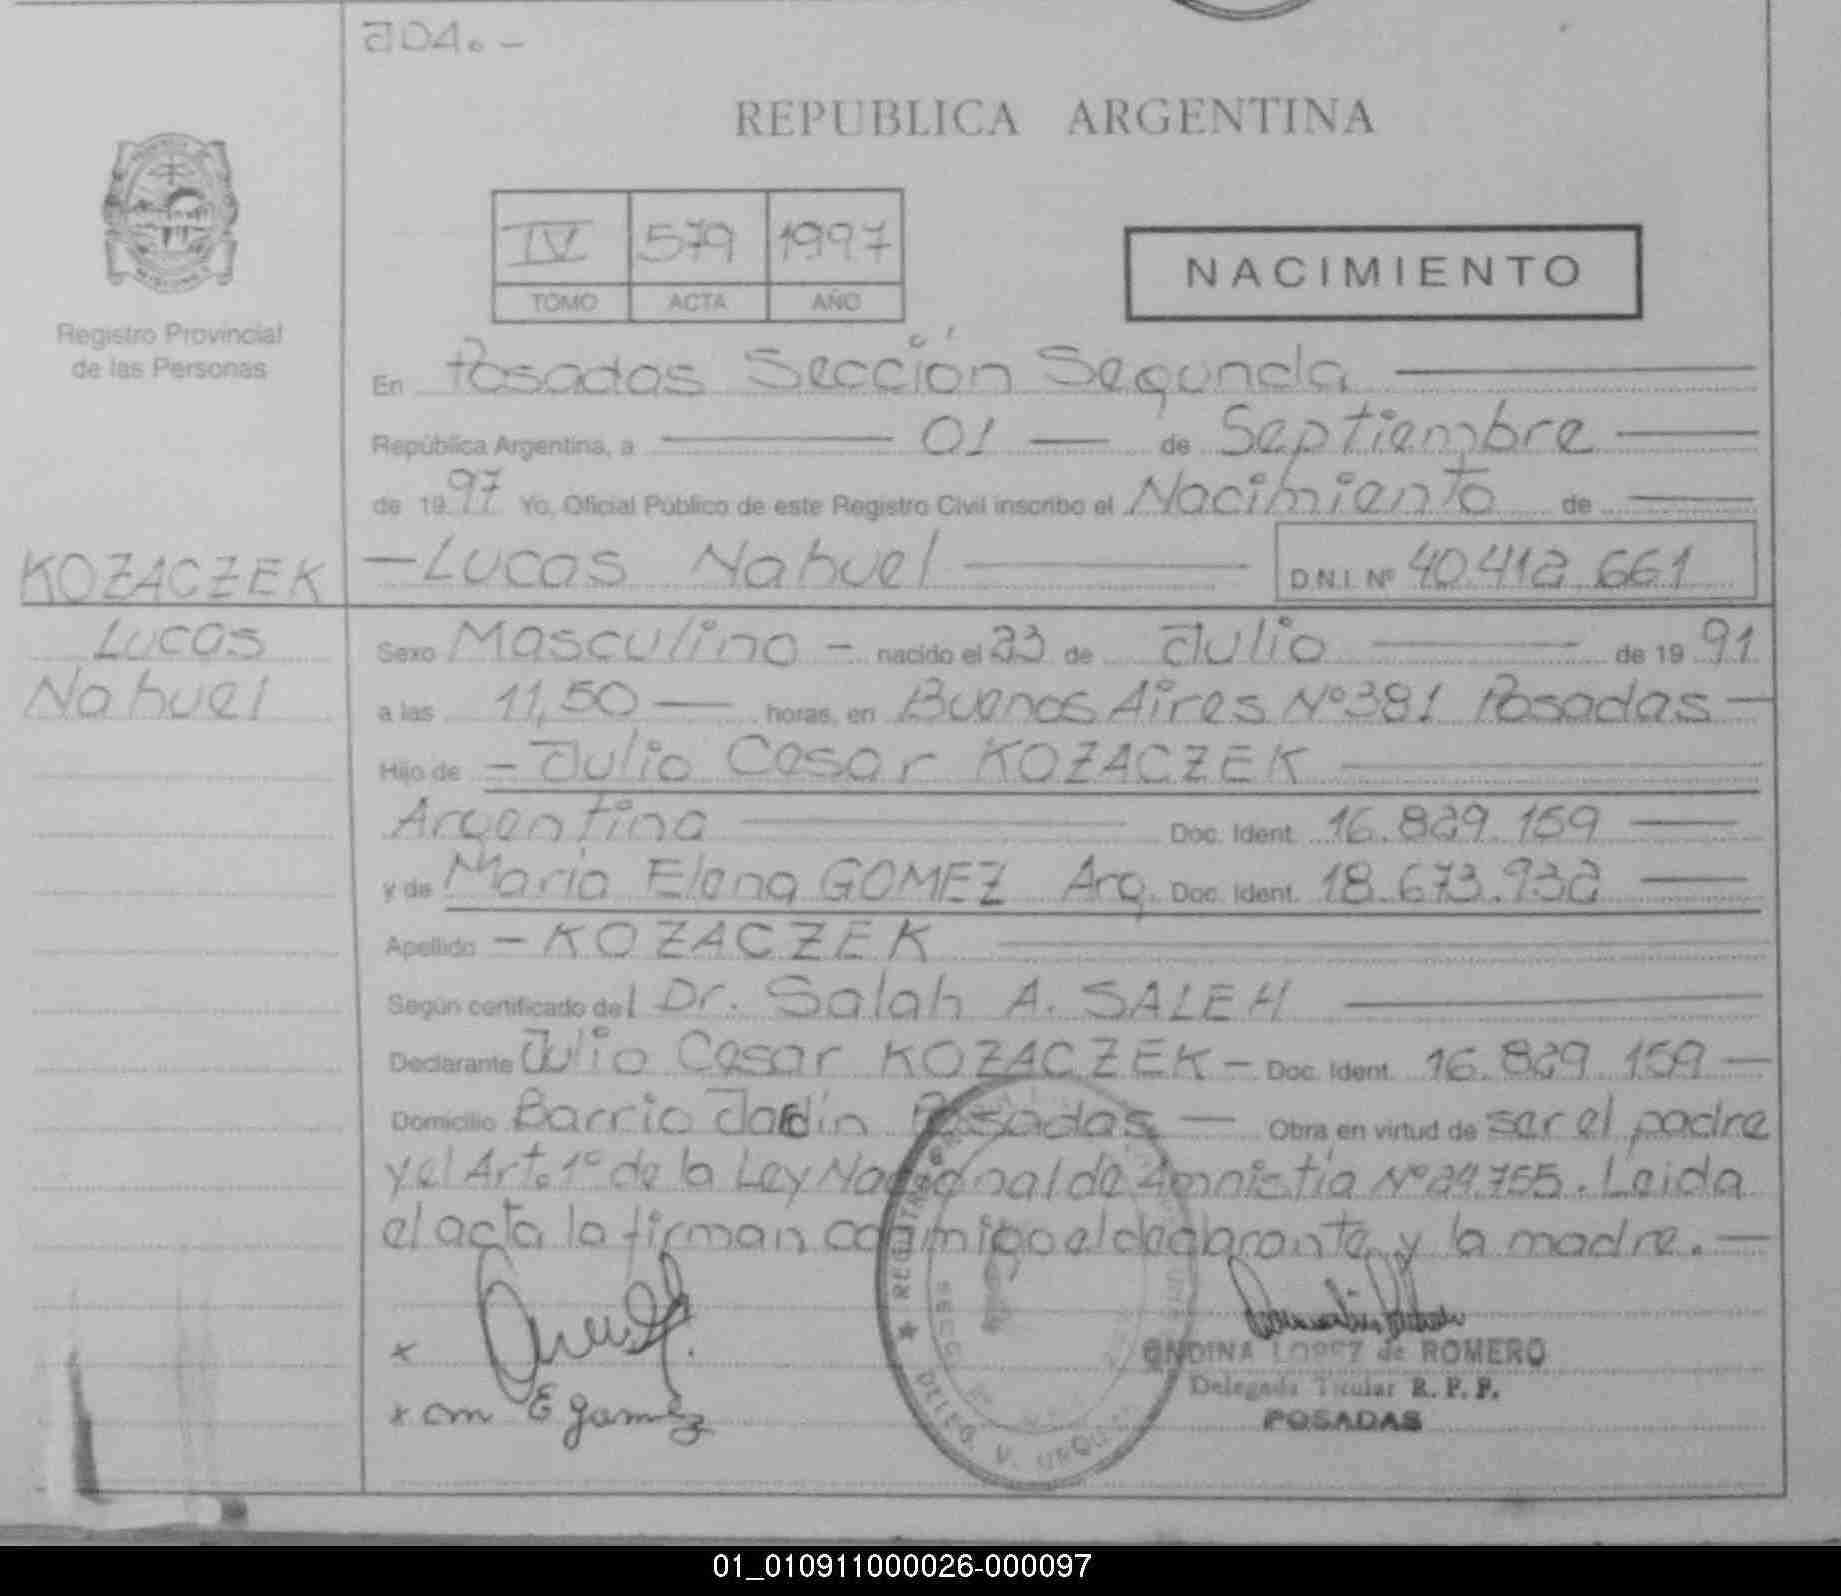 204.-
REPUBLICA ARGENTINA
IV 579 1997
TOMO ACTA AÑO
NACIMIENTO
Registro Provincial
de las Personas
En Posadas Sección Segunda
República Argentina, a 01 de Septiembre
de 1997 Yo, Oficial Público de este Registro Civil inscribo el Nacimiento de
KOZACZEK
Lucas
Nahuel
- Lucas Nahuel D.N.I. Nº 40.412.661
Sexo Masculino - nacido el 23 de Julio de 1991
a las 11,50 horas, en Buenos Aires Nº 381 Posadas -
Hijo de - Julio Cesar KOZACZEK
Argentina Doc. Ident. 16.829.159
y de Maria Elena GOMEZ Arg. Doc. Ident. 18.673.932
Apellido - KOZACZEK
Según certificado del Dr. Salah A. SALEH
Declarante Julio Cesar KOZACZEK - Doc. Ident. 16.829.159 -
Domicilio Barrio Jardín Posadas - Obra en virtud de ser el padre
y el Art. 1º de la Ley Nacional de Amnistía Nº 24.755. Leida
el acta la firman conmigo el declarante y la madre. -
x
x m E Gomez
REGISTRO
DELEG. V. URQU
ONDINA LOPEZ de ROMERO
Delegada Titular R. P. P.
POSADAS
01_010911000026-000097